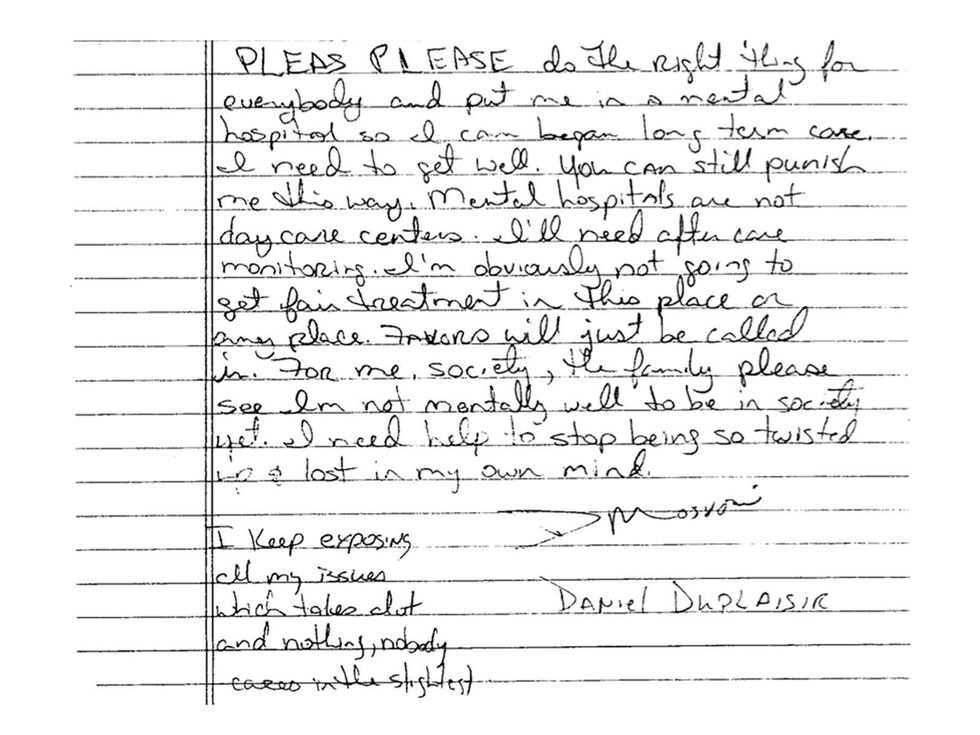 PLEAS PLEASE do the right thing for
everybody and put me in a mental
hospital so I can began long term care.
I need to get well. You can still punish
me this way. Mental hospitals are not
day care centers. I'll need after care
monitoring. I'm obviously not going to
get fair treatment in this place or
any place. Favors will just be called
in. For me, society, the family please
see Im not mentally well to be in society
yet. I need help to stop being so twisted
up & lost in my own mind.
I Keep exposing
all my issues
which takes alot
DANiel DUPLAISIR
and nothing, nobody
cares in the slightest